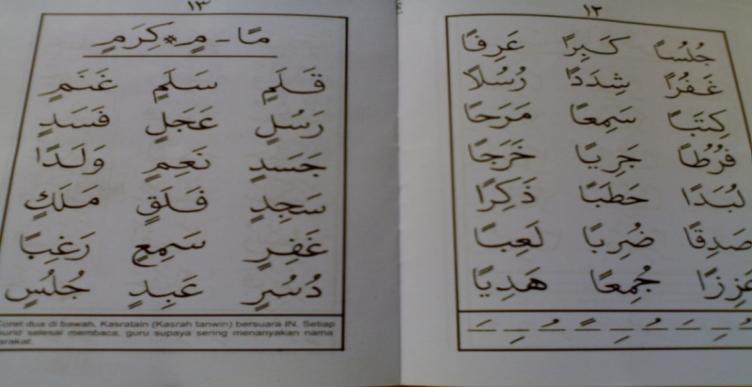 ١٢
جُلُسًا كَبِرًا عَرِفًا
غَفُرًا شِدَدًا رُسُلًا
كِتَبًا سَمِعًا مَرَحًا
فُرُطًا جَرِيًا خَرَجًا
لُبَدًا حَطَبًا ذَكِرًا
صَدِقًا ضُرِبًا لَعِبًا
عَزِزًا جُمِعًا هَدِيًا
١٣
مًا - مٍ * كِرَمٍ
قَلَمٍ سَلَمٍ غَنَمٍ
رَسُلٍ عَجَلٍ فَسَدٍ
جَسَدٍ نَعِمٍ وَلَدًا
سَجِدٍ فَلَقٍ مَلَكٍ
غَفِرٍ سَمِعٍ رَغِبًا
دُسُرٍ عَبِدٍ جُلُسٍ
Coret dua di bawah, Kasratain (Kasrah tanwin) bersuara IN. Setiap
murid selesai membaca, guru supaya sering menanyakan nama
harakat.